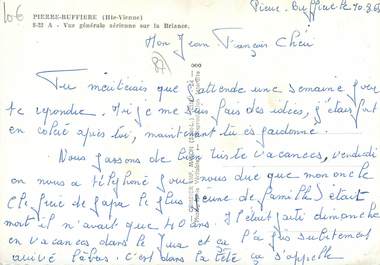 106
Pierre-Buffière le 10.8.6
PIERRE-BUFFIERE (Hte-Vienne)
8-22 A - Vue générale aérienne sur la Briance.
Mon Jean François Chéri
87
Tu mériterais que j'attende une semaine pour
te répondre. Si je me fais des idées, j'étais fort
en colère après toi, maintenant tu es pardonné.
Nous passons de bien triste vacances, vendredi
on nous a téléphoné pour nous dire que mon oncle
Ch. frère de papa le plus jeune de famille) était
mort il n'avait que 40 ans. Il était parti dimanche
en vacances dans le Jura et ça l'a pris subitement
arrivé là bas. c'est dans la tête ça s'appelle